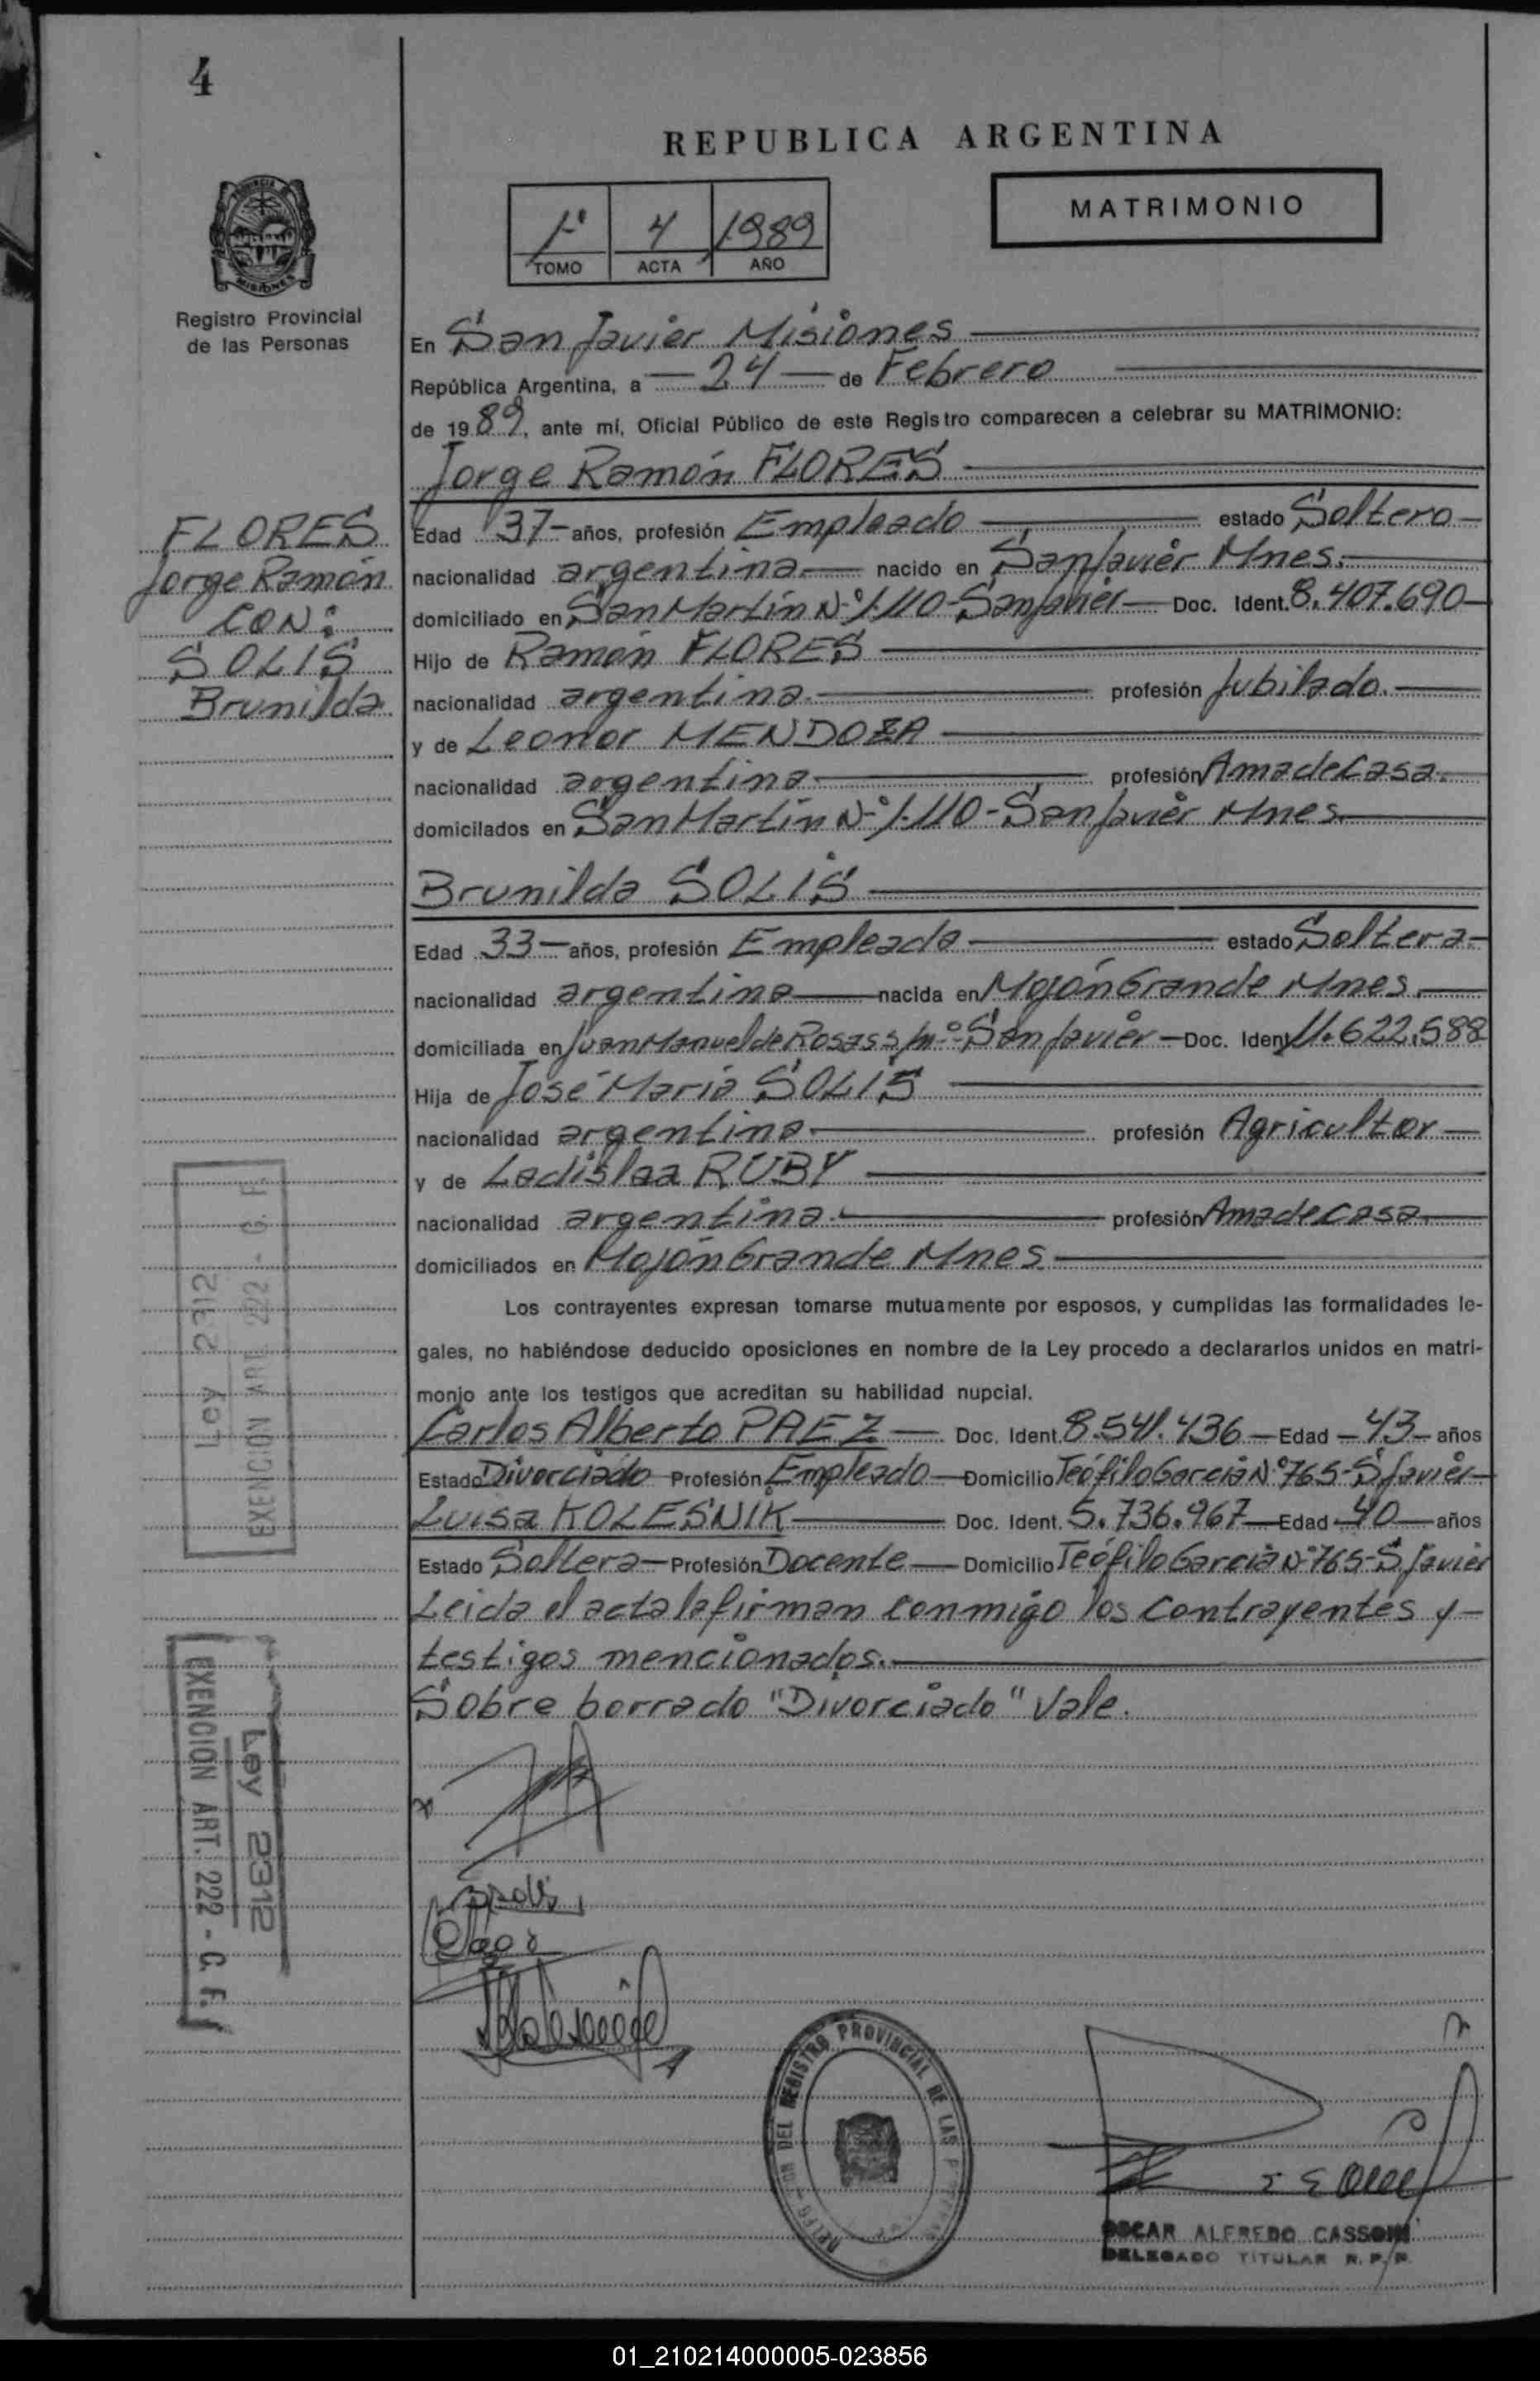 4
REPUBLICA ARGENTINA
MATRIMONIO
1º 4 1989
TOMO ACTA AÑO
PROVINCIA DE
MISIONES
Registro Provincial
de las Personas
En San Javier Misiones
República Argentina, a — 24 — de Febrero
de 1989, ante mí, Oficial Público de este Registro comparecen a celebrar su MATRIMONIO:
Jorge Ramón FLORES
FLORES
Jorge Ramón
CON:
SOLIS
Brunilda
Edad 37- años, profesión Empleado estado Soltero-
nacionalidad argentina.- nacido en San Javier Mnes.
domiciliado en San Martín Nº 1.110-San Javier- Doc. Ident. 8.407.690-
Hijo de Ramón FLORES
nacionalidad argentina. profesión Jubilado.
y de Leonor MENDOZA
nacionalidad argentina profesión Ama de Casa.
domicilados en San Martín Nº 1.110-San Javier Mnes.
Brunilda SOLIS
Edad 33- años, profesión Empleada estado Soltera-
nacionalidad argentina nacida en Mojón Grande Mnes.
domiciliada en Juan Manuel de Rosas s/nº-San Javier- Doc. Ident. 11.622.588
Hija de José María SOLIS
nacionalidad argentina profesión Agricultor-
y de Ladislaa RUBY
nacionalidad argentina. profesión Ama de casa.
domiciliados en Mojón Grande Mnes.
Los contrayentes expresan tomarse mutuamente por esposos, y cumplidas las formalidades le-
gales, no habiéndose deducido oposiciones en nombre de la Ley procedo a declararlos unidos en matri-
monio ante los testigos que acreditan su habilidad nupcial.
Carlos Alberto PAEZ- Doc. Ident. 8.541.436- Edad -43- años
Estado Divorciado Profesión Empleado- Domicilio Teófilo García Nº 765-S Javier-
Luisa KOLESNIK Doc. Ident. 5.736.967- Edad 40- años
Estado Soltera- Profesión Docente- Domicilio Teófilo García Nº 765-S Javier
Leida el acta la firman conmigo los contrayentes y-
testigos mencionados.
Sobre borrado "Divorciado" Vale.
Ley 2312
EXENCION ART. 222 - C. F.
Ley 2312
EXENCION ART. 222 - C. F.
DEL REGISTRO PROVINCIAL DE LAS
OSCAR ALFREDO CASSONI
DELEGADO TITULAR R. P. P.
01_210214000005-023856